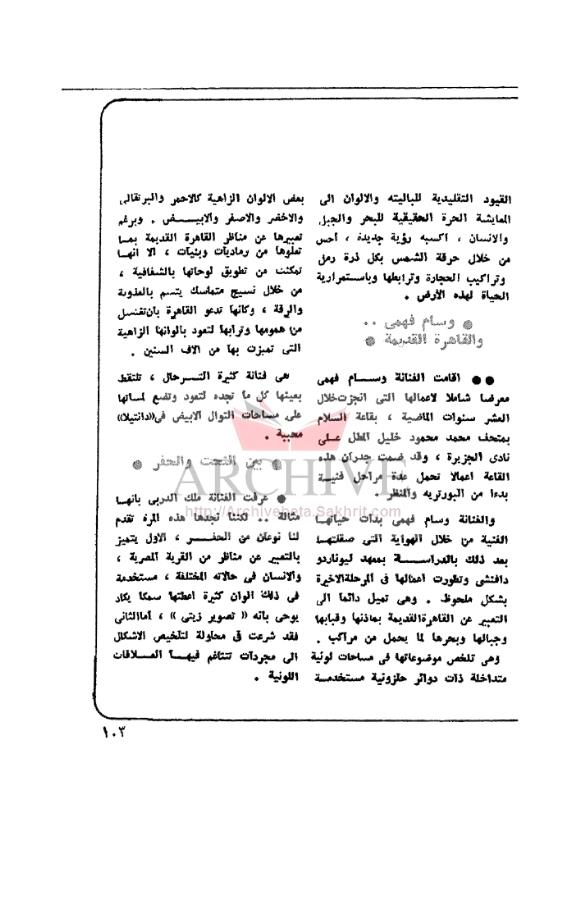 القيود التقليدية للباليته والالوان الى
المعايشة الحرة الحقيقية للبحر والجبل
والانسان ، اكسبه رؤية جديدة ، أحس
من خلال حرقة الشمس بكل ذرة رمل
وتراكيب الحجارة وترابطها وباستمرارية
الحياة لهذه الأرض .
● وسام فهمى ..
والقاهرة القديمة ●
●● اقامت الفنانة وســام فهمى
معرضا شاملا لاعمالها التى انجزت خلال
العشر سنوات الماضية ، بقاعة السلام
بمتحف محمد محمود خليل المطل علـى
نادى الجزيرة ، وقد ضمت جدران هذه
القاعة اعمالا تحمل عدة مراحل فنيـة
بدءا من البورتريه والمنظر .
والفنانة وسام فهمى بدأت حياتهـا
الفنية من خلال الهواية التى صقلتهـا
بعد ذلك بالدراســـة بمعهد ليوناردو
دافنشى وتطورت اعمالها فى المرحلة الاخيرة
بشكل ملحوظ . وهى تميل دائما الى
التعبير عن القاهرة القديمة بماذنها وقبابها
وجبالها وبحرها لما يحمل من مراكب .
وهى تلخص موضوعاتها فى مساحات لونية
متداخلة ذات دوائر حلزونية مستخدمـة
بعض الالوان الزاهية كالاحمر والبرتقالى
والاخضر والاصفر والابيــــض . وبرغم
تعبيرها عن مناظر القاهرة القديمة بمـا
تعلوها من رماديات وبنيات ، الا انهـا
تمكنت من تطويق لوحاتها بالشفافية ،
من خلال نسيج متماسك يتسم بالعذوبة
والرقة ، وكأنها تدعو القاهرة بان تغتسل
من همومها وترابها لتعود بالوانها الزاهية
التى تميزت بها من الاف السنين .
هى فنانة كثيرة التـــرحال ، تلتقط
بعينها كل ما تجده لتعود وتضع لمساتها
على مساحات التوال الابيض فى «دانتيلا»
محببة .
● بين النحت والحفر ●
● عرفت الفنانة ملك الدربى بانهـا
مثالة .. لكننا نجدها هذه المرة تقدم
لنا نوعان من الحفـــر ، الأول يتميز
بالتعبير عن مناظر من القرية المصرية ،
والانسان فى حالاته المختلفة ، مستخدمة
فى ذلك الوان كثيرة اعطتها سمكا يكاد
يوحى بانه « تصوير زيتى » ، أما الثانى
فقد شرعت فى محاولة لتلخيص الاشكال
الى مجردات تتناغم فيهـــا العــلاقات
اللونية .
١٠٣
ARCHIVE
http://Archivebeta.Sakhrit.com